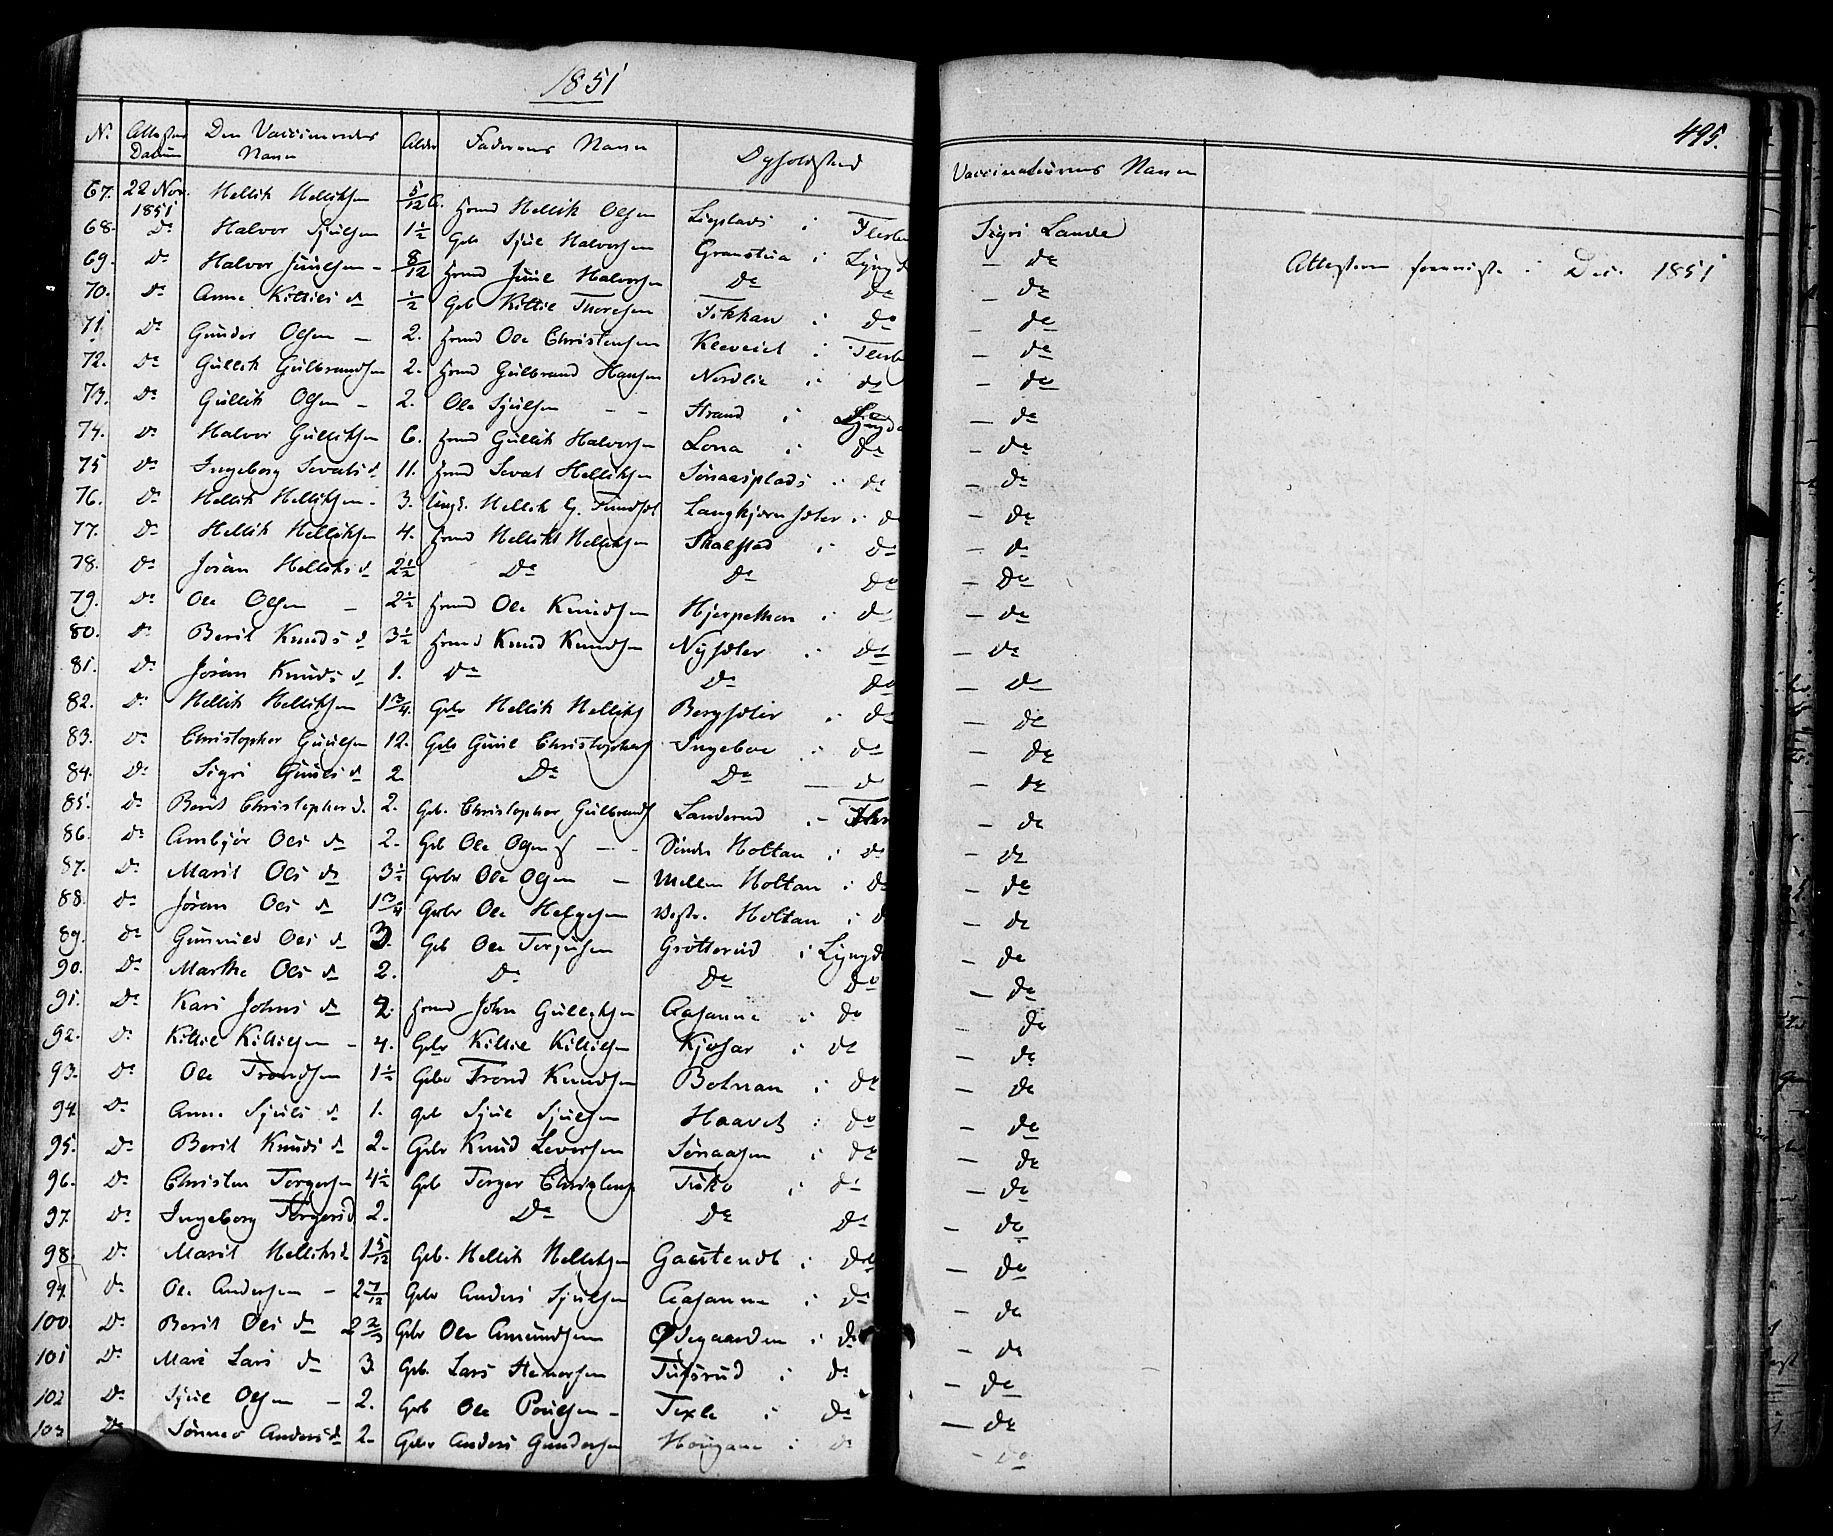 1851
495.
No. Attestens Datum Den Vaccineredes Navn Alder Faderens Navn Opholdsted Vaccinateurens Navn
67. 22 Nov. 1851 Hellik Helliksen 5/12 Hmd Hellik Olsen i Flesb Sigri Lande
68. Do Halvor Sjulsen 1½ Gbr Sjul Halvorsen Granstua i Lyngd — do
Attesterne fremviste i Dec. 1851
69. Do Halvor Juulsen – 8/12 Hmd Juul Halvorsen Do do — do
70. Do Anne Kittils d ½ Gb Kittil Thoresen i do — do
71. Do Gunder Olsen – 2. Hmd Ole Christensen i Flesb — do
72. Do Gullik Gulbrandsen 2. Hmd Gulbrand Hansen Nordlie i do — do
73. Do Gullik Olsen – 2. Ole Sjulsen – – Strand i Lyngd — do
74. Do Halvor Gulliksen 6. Hmd Gullik Halvorsen Lona i do — do
75 Do Ingeborg Sevatsd 11. Hmd Sevat Helliksen i do — do
76. Do Hellik Helliksen – 3. Ungk. Hellik G. i d — do
77. Do Hellik Helliksen 4. Hmd Hellik Helliksen i do — do
78. Do Jøran Helliks d 2½ Do Do do — do
79. Do Ole Olsen – 2½ Hmd Ole Knudsen i do — do
80. Do Berit Knuds d 3½ Hmd Knud Knudsen i do — do
81. Do Jøran Knuds d 1. Do Do do — do
82. Do Hellik Helliksen 1¾. Gbr Hellik Helliks i do — do
83. Do Christopher Guulsen 12. Gbr Guul Christophers Ingeboe i do — do
84. Do Sigri Guuls d 2. Do Do — d — do
85. Do Berit Christopher d. 2. Gb. Christopher Gulbrands Landerud i Flesb — do
86. Do Ambjør Oles d 2. Gb Ole Olsen – – Søndre Holtan i do — do
87. Do Marit Oles d 3½ Gbr Ole Olsen – Mellem Holtan i do — do
88. Do Jøran Oles d 1¾ Gbr Ole Helgesen Vestre Holtan i d — do
89. Do Gunnild Oles d 3. Gb Ole Torjusen Grøtterud i Lyngd — do
90. Do Marthe Oles d 2. Do Do do — do
91. Do Kari Johns d 2. Hmd John Gulliksen Aasanne i do — do
92. Do Kittil Kittilsen – 4. Gbr Kittil Kittilsen i do — do
93. Do Ole Trondsen 1½ Gbr Trond Knudsen i do — do
94. Do Anne Sjuls d 1. Gb Sjul Sjulsen Haavet i do — do
95. Do Berit Knuds d 2. Gbr Knud Seversen i do — do
96. Do Christen Torgersen 4½ Gb Torger Christens i do — do
97. Do Ingeborg Torgersd 2. Do Do do — do
98. Do Marit Helliksd 1 5/12 Gb. Hellik Helliksen i do — do
99. Do Ole Andersen – 2 7/12 Gbr Anders Sjulsen Aasanne i do — do
100. Do Berit Oles d 2 2/3 Gbr Ole Amundsen Ødegaarden i do — do
101 Do Mari Lars d 3. Gb. Lars Stenersen Tufsrud i do — do
102 Do Sjul Olsen – 2. Gb Ole Poulsen – Texle i do — do
103 Do Anders d 2. Gbr Anders Gundersen Hougane i do — do